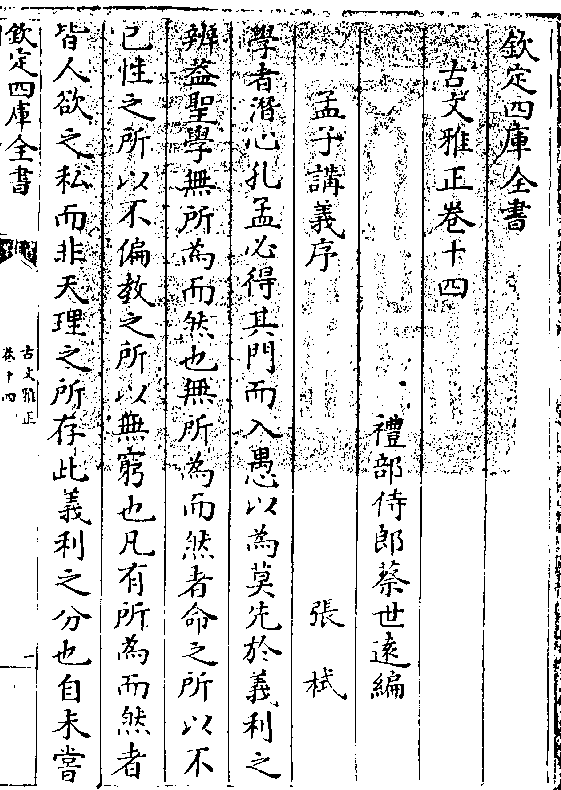 欽定四庫全書
古文雅正巻十四
禮部侍郎蔡世逺編
孟子講義序
張栻
學者潛心孔孟必得其門而入愚以為莫先於義利之
辨葢聖學無所為而然也無所為而然者命之所以不
已性之所以不偏教之所以無窮也凡有所為而然者
皆人欲之私而非天理之所存此義利之分也自未嘗
欽定四庫全書
古文雅正
巻十四
一